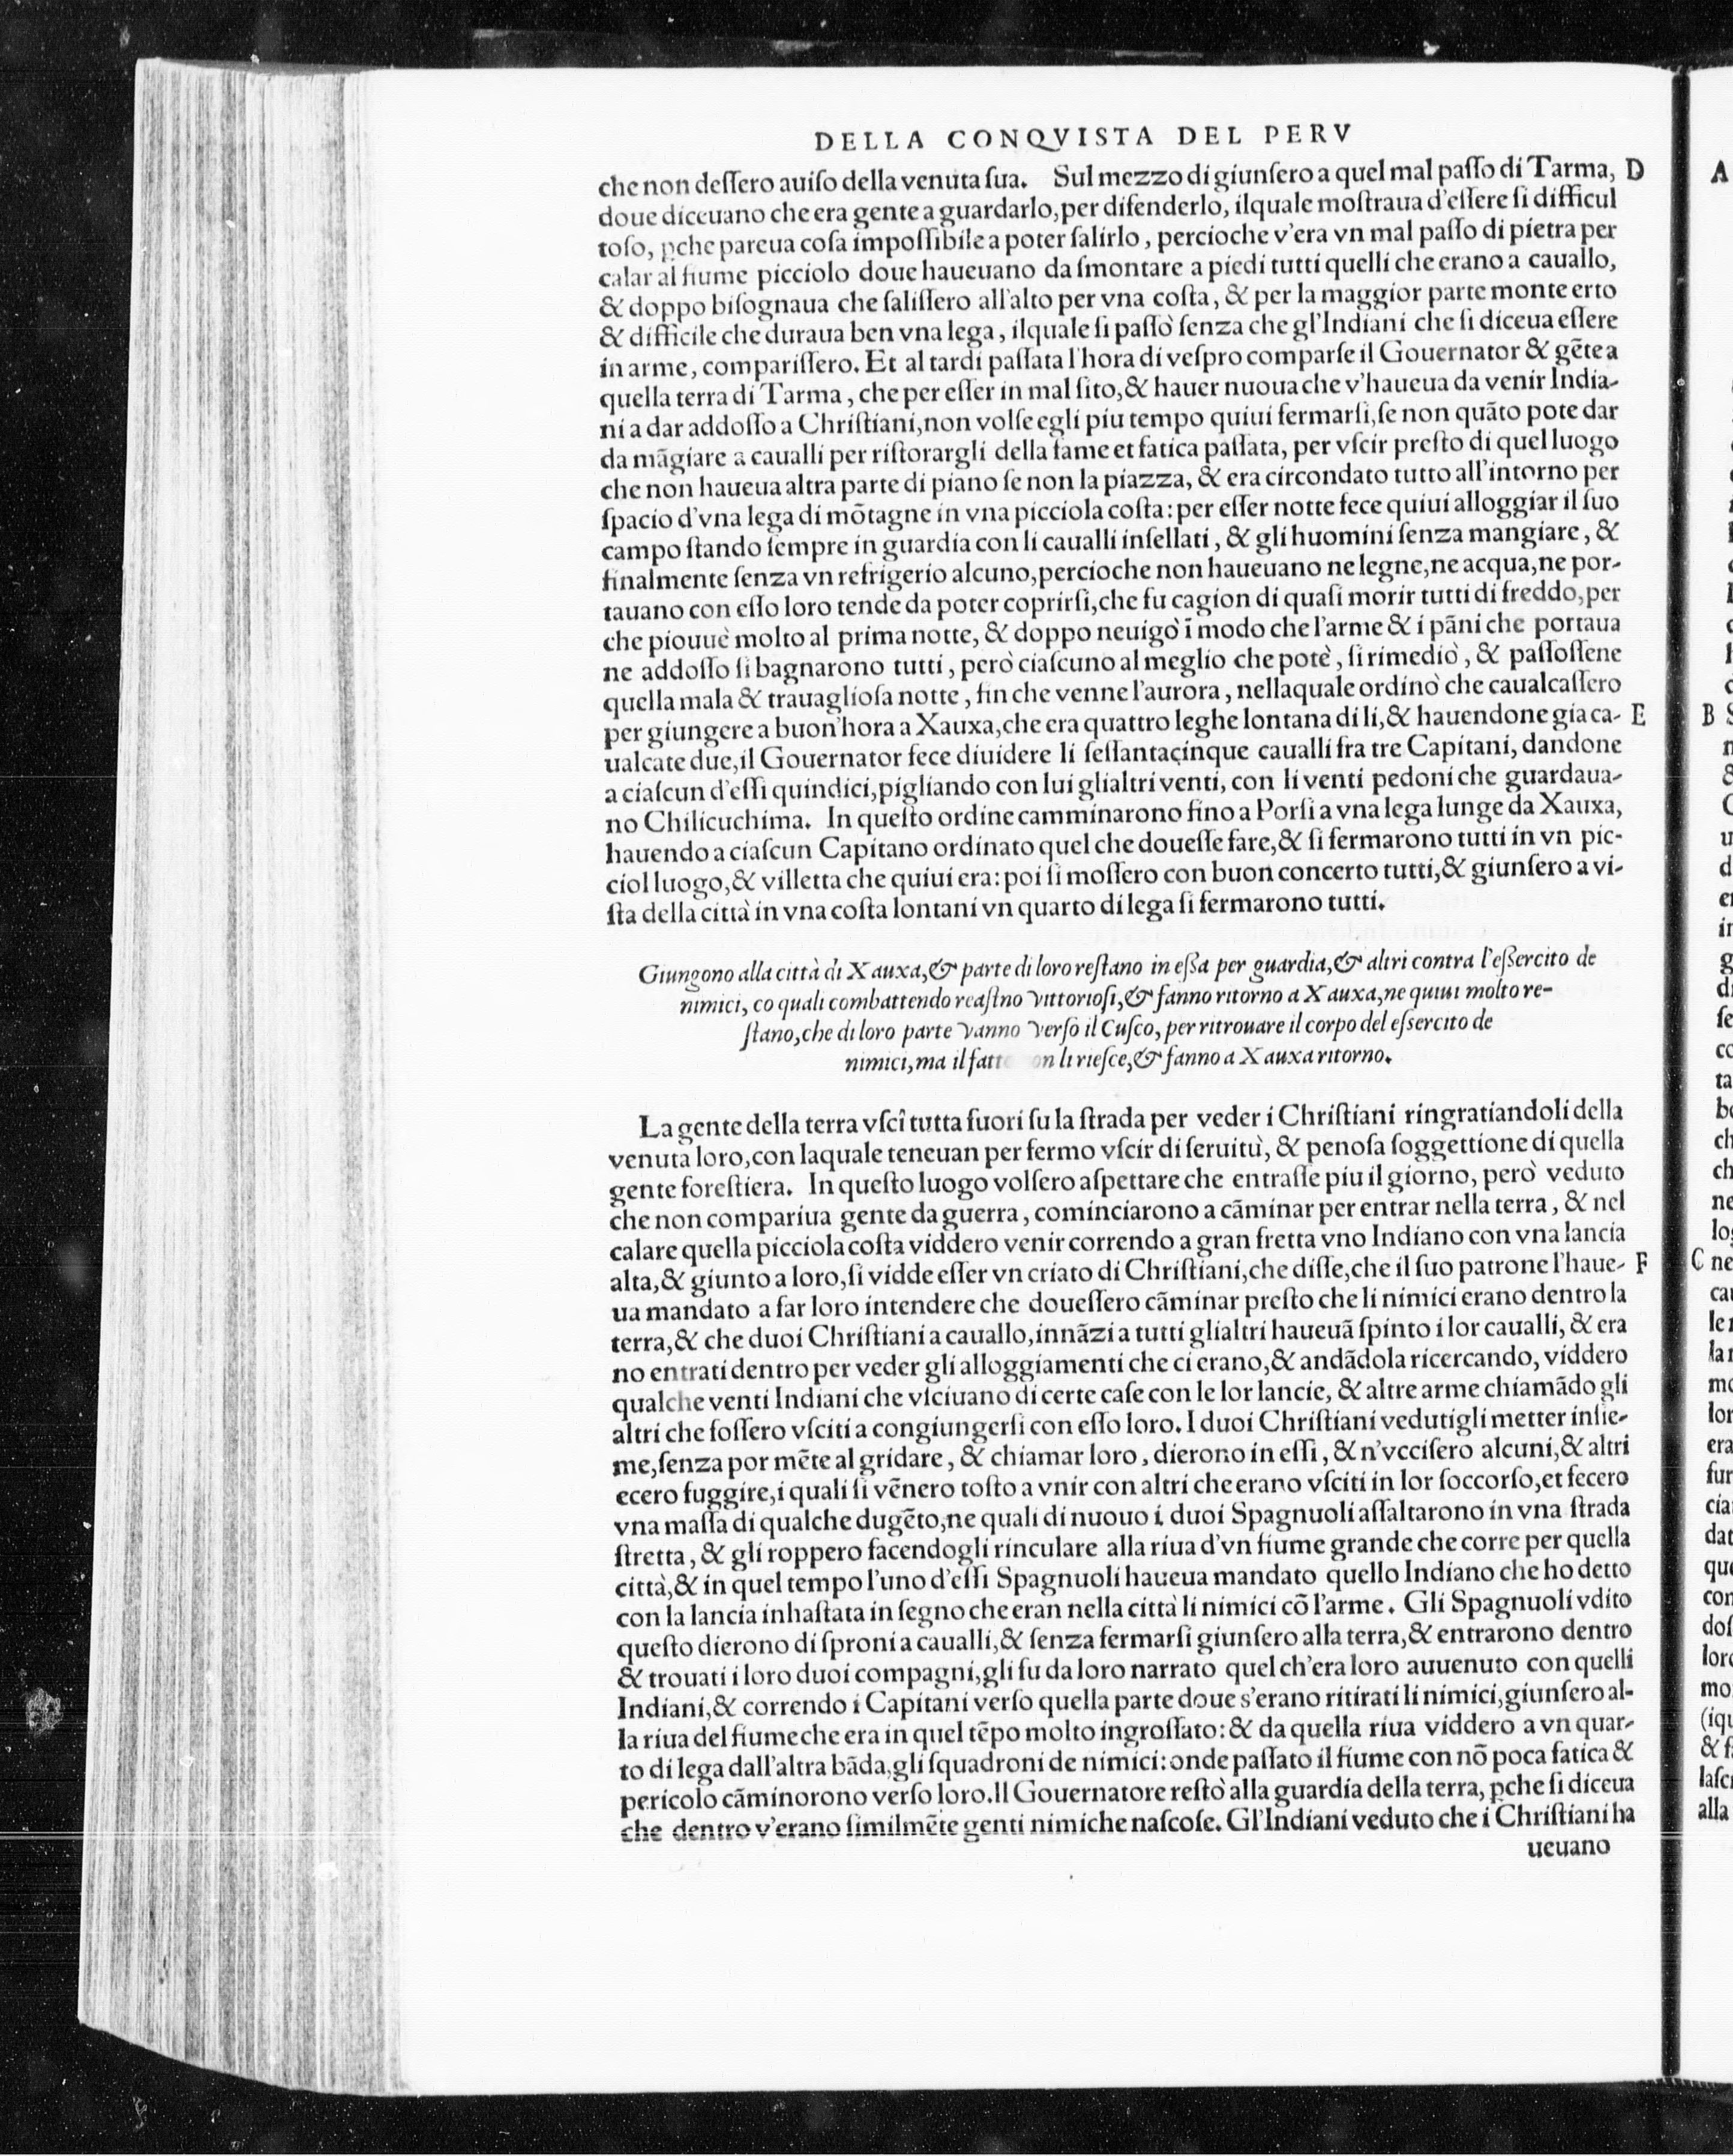 DELLA CONQVISTA DEL PERV
che non deſſero auiſo della venuta ſua. Sul mezzo di giunſero a quel mal paſſo di Tarma, D
doue diceuano che era gente a guardarlo, per difenderlo, ilquale moſtraua d'eſſere ſi difficul
toſo, ꝑche pareua coſa impoſſibile a poter ſalirlo, percioche v'era vn mal paſſo di pietra per
calar al fiume picciolo doue haueuano da ſmontare a piedi tutti quelli che erano a cauallo,
& doppo biſognaua che ſaliſſero all'alto per vna coſta, & per la maggior parte monte erto
& difficile che duraua ben vna lega, ilquale ſi paſſò ſenza che gl'Indiani che ſi diceua eſſere
in arme, compariſſero. Et al tardi paſſata l'hora di veſpro comparſe il Gouernator & gẽte a
quella terra di Tarma, che per eſſer in mal ſito, & hauer nuoua che v'haueua da venir India-
ni a dar addoſſo a Chriſtiani, non volſe egli piu tempo quiui fermarſi, ſe non quãto pote dar
da mãgiare a caualli per riſtorargli della fame et fatica paſſata, per vſcir preſto di quel luogo
che non haueua altra parte di piano ſe non la piazza, & era circondato tutto all'intorno per
ſpacio d'vna lega di mõtagne in vna picciola coſta: per eſſer notte fece quiui alloggiar il ſuo
campo ſtando ſempre in guardia con li caualli inſellati, & gli huomini ſenza mangiare, &
finalmente ſenza vn refrigerio alcuno, percioche non haueuano ne legne, ne acqua, ne por-
tauano con eſſo loro tende da poter coprirſi, che fu cagion di quaſi morir tutti di freddo, per
che piouuè molto al prima notte, & doppo neuigò ĩ modo che l'arme & i pãni che portaua
ne addoſſo ſi bagnarono tutti, però ciaſcuno al meglio che potè, ſi rimediò, & paſſoſſene
quella mala & trauaglioſa notte, fin che venne l'aurora, nellaquale ordinò che caualcaſſero
per giungere a buon'hora a Xauxa, che era quattro leghe lontana di li, & hauendone gia ca- E
ualcate due, il Gouernator fece diuidere li ſeſſantacinque caualli fra tre Capitani, dandone
a ciaſcun d'eſſi quindici, pigliando con lui glialtri venti, con li venti pedoni che guardaua-
no Chilicuchima. In queſto ordine camminarono fino a Porſi a vna lega lunge da Xauxa,
hauendo a ciaſcun Capitano ordinato quel che doueſſe fare, & ſi fermarono tutti in vn pic-
ciol luogo, & villetta che quiui era: poi ſi moſſero con buon concerto tutti, & giunſero a vi-
ſta della città in vna coſta lontani vn quarto di lega ſi fermarono tutti.
Giungono alla città di Xauxa, & parte di loro reſtano in eſſa per guardia, & altri contra l'eſſercito de
nimici, co quali combattendo reaſtno vittorioſi, & fanno ritorno a Xauxa, ne quiui molto re-
ſtano, che di loro parte vanno verſo il Cuſco, per ritrouare il corpo del eſſercito de
nimici, ma il fatt on li rieſce, & fanno a Xauxa ritorno.
La gente della terra vſcî tutta fuori ſu la ſtrada per veder i Chriſtiani ringratiandoli della
venuta loro, con laquale teneuan per fermo vſcir di ſeruitù, & penoſa ſoggettione di quella
gente foreſtiera. In queſto luogo volſero aſpettare che entraſſe piu il giorno, però veduto
che non compariua gente da guerra, cominciarono a cãminar per entrar nella terra, & nel
calare quella picciola coſta viddero venir correndo a gran fretta vno Indiano con vna lancia
alta, & giunto a loro, ſi vidde eſſer vn criato di Chriſtiani, che diſſe, che il ſuo patrone l'haue- F
ua mandato a far loro intendere che doueſſero cãminar preſto che li nimici erano dentro la
terra, & che duoi Chriſtiani a cauallo, innãzi a tutti glialtri haueuã ſpinto i lor caualli, & era
no entrati dentro per veder gli alloggiamenti che ci erano, & andãdola ricercando, viddero
qualche venti Indiani che vſciuano di certe caſe con le lor lancie, & altre arme chiamãdo gli
altri che foſſero vſciti a congiungerſi con eſſo loro. I duoi Chriſtiani vedutigli metter inſie-
me, ſenza por mẽte al gridare, & chiamar loro, dierono in eſſi, & n'vcciſero alcuni, & altri
ecero fuggire, i quali ſi vẽnero toſto a vnir con altri che erano vſciti in lor ſoccorſo, et fecero
vna maſſa di qualche dugẽto, ne quali di nuouo i duoi Spagnuoli aſſaltarono in vna ſtrada
ſtretta, & gli roppero facendogli rinculare alla riua d'vn fiume grande che corre per quella
città, & in quel tempo l'uno d'eſſi Spagnuoli haueua mandato quello Indiano che ho detto
con la lancia inhaſtata in ſegno che eran nella città li nimici cõ l'arme. Gli Spagnuoli vdito
queſto dierono di ſproni a caualli, & ſenza fermarſi giunſero alla terra, & entrarono dentro
& trouati i loro duoi compagni, gli fu da loro narrato quel ch'era loro auuenuto con quelli
Indiani, & correndo i Capitani verſo quella parte doue s'erano ritirati li nimici, giunſero al-
la riua del fiume che era in quel tẽpo molto ingroſſato: & da quella riua viddero a vn quar-
to di lega dall'altra bãda, gli ſquadroni de nimici: onde paſſato il fiume con nõ poca fatica &
pericolo cãminorono verſo loro. Il Gouernatore reſtò alla guardia della terra, ꝑche ſi diceua
che dentro v'erano ſimilmẽte genti nimiche naſcoſe. Gl'Indiani veduto che i Chriſtiani ha
ueuano
A
B
C